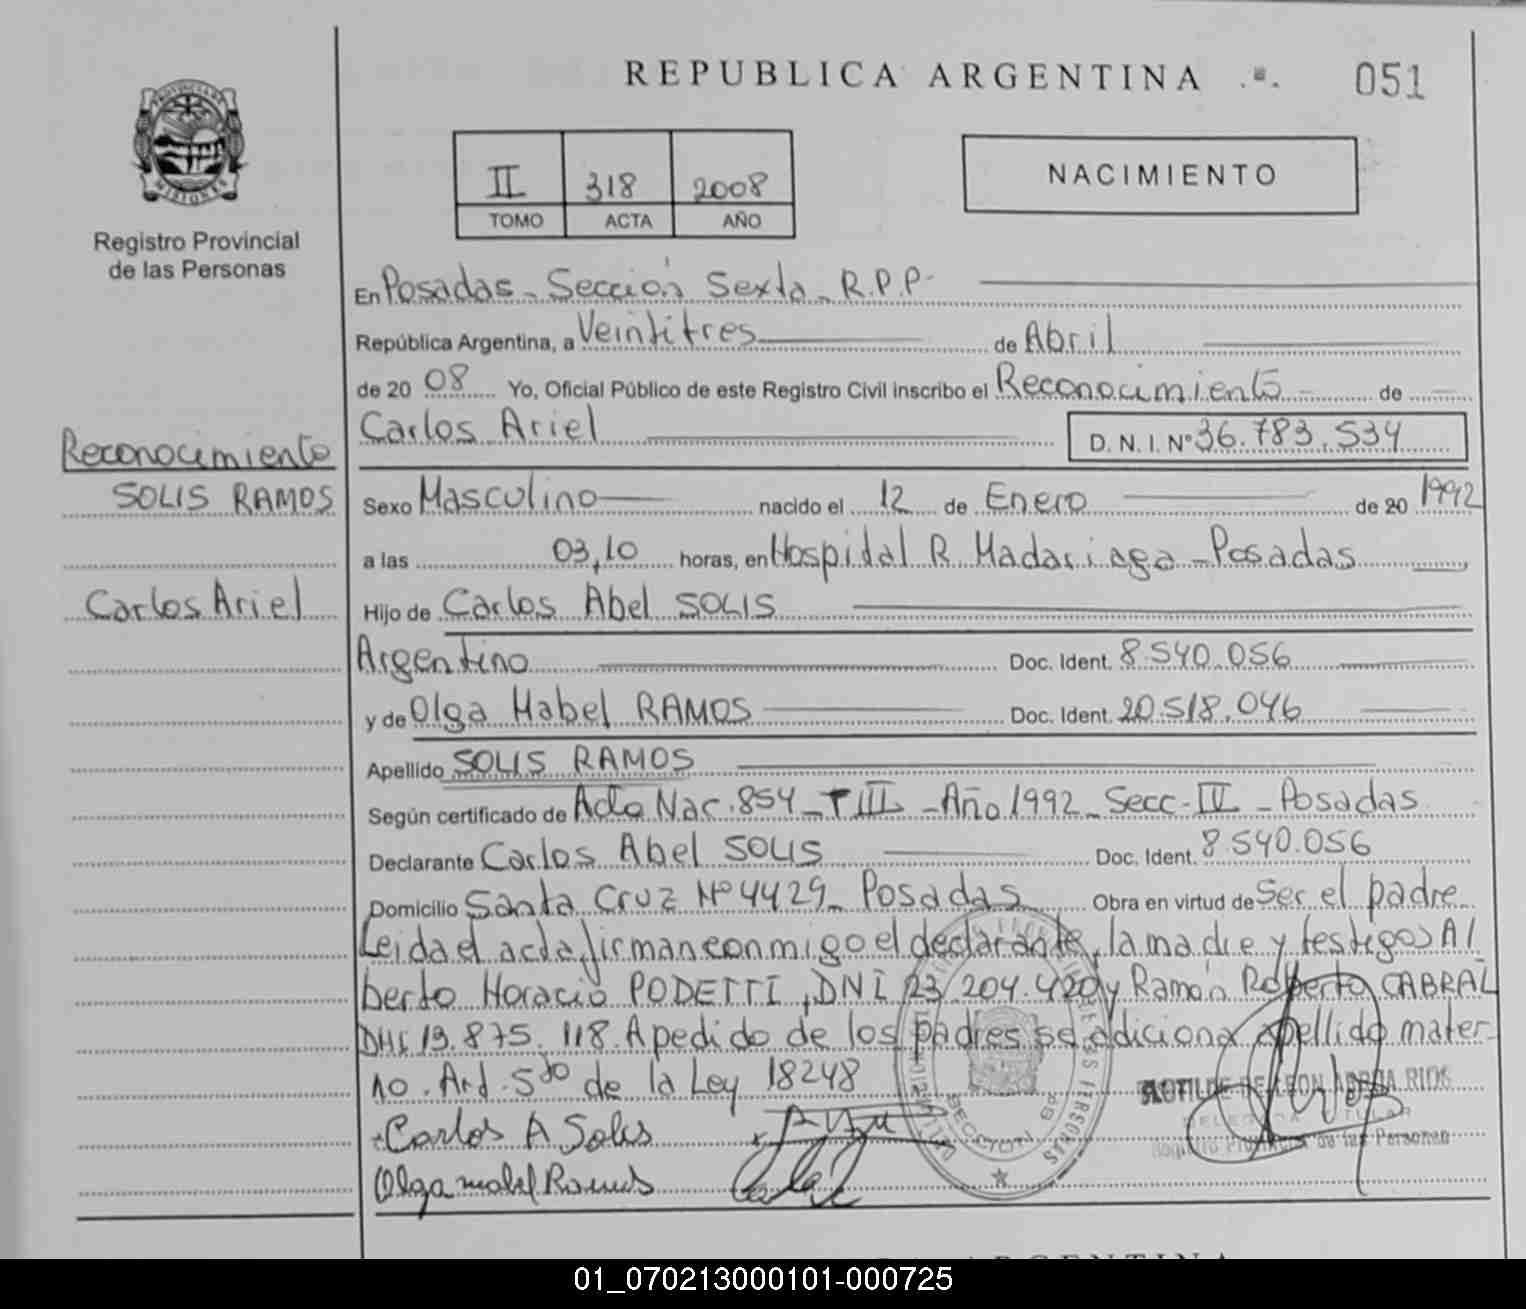 REPUBLICA ARGENTINA
051
PROVINCIA DE
MISIONES
Registro Provincial
de las Personas
II 318 2008
TOMO ACTA AÑO
NACIMIENTO
En Posadas - Sección Sexta - R.P.P-
República Argentina, a Veintitres de Abril
de 20 08 Yo, Oficial Público de este Registro Civil inscribo el Reconocimiento de
Carlos Ariel D. N. I. Nº 36.783.534
Reconocimiento
SOLIS RAMOS
Carlos Ariel
Sexo Masculino nacido el 12 de Enero de 20 1992
a las 03,10 horas, en Hospital R. Madariaga - Posadas
Hijo de Carlos Abel SOLIS
Argentino Doc. Ident. 8.540.056
y de Olga Mabel RAMOS Doc. Ident. 20.518.046
Apellido SOLIS RAMOS
Según certificado de Acta Nac. 854 - T III - Año 1992 - Secc - II - Posadas
Declarante Carlos Abel SOLIS Doc. Ident. 8.540.056
Domicilio Santa Cruz Nº 4429 - Posadas Obra en virtud de Ser el padre
Leida el acta, firman conmigo el declarante, la madre y testigos Al
berto Horacio PODETTI, DNI 23.204.420 y Ramón Roberto CABRAL
DNI 13.875.118. A pedido de los padres se adiciona apellido mater-
no. Art. 5to de la Ley 18248
Carlos A Solis
Olga mabel Ramos
DELEGADA TITULAR
Registro Provincial de las Personas
01_070213000101-000725